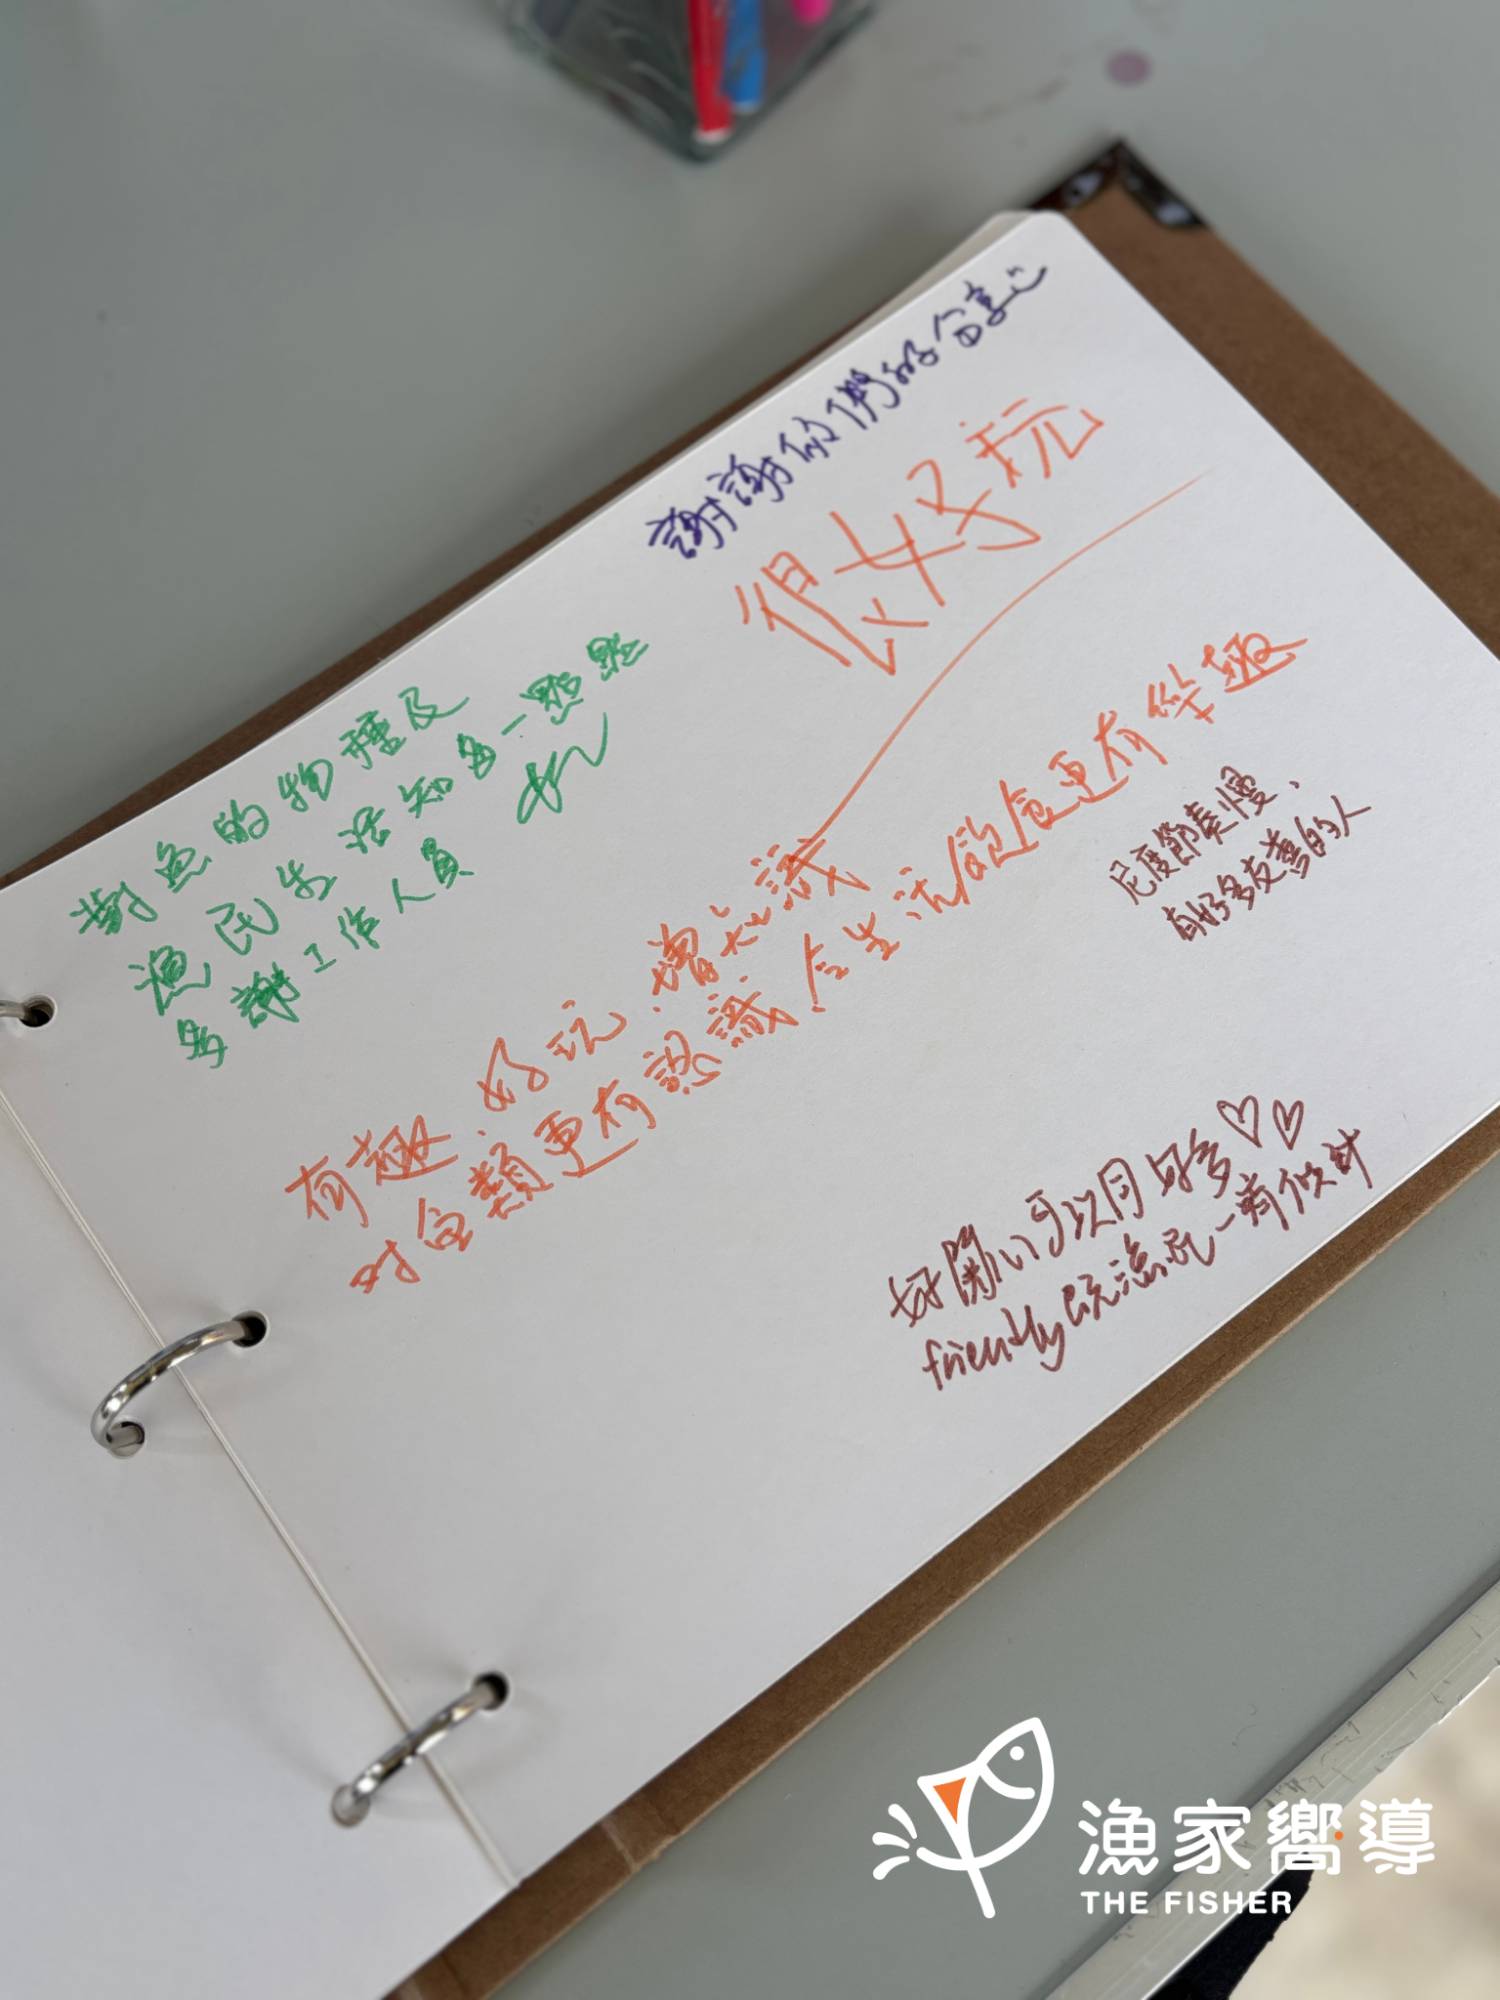 謝謝你們的分享
很好玩
對魚的物種及
漁民生活知多一點點
多謝工作人員
有趣、好玩、增知識
对魚類更有認識,令生活飲食更有樂趣
尼度節奏慢、
有好多友善的人
好開心可以同好多♡♡
friendly 既漁民一齊傾計
漁家嚮導
THE FISHER